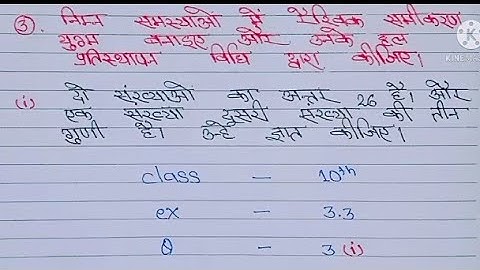 ③. निम्न समस्याओं में रैखिक समीकरण
युग्म बनाइए और उनके हल
प्रतिस्थापन विधि द्वारा कीजिए।
(i) दो संख्याओं का अन्तर 26 है। और
एक संख्या दूसरी संख्या की तीन
गुणी है। उन्हें ज्ञात कीजिए।
class – 10th
ex – 3.3
Q – 3 (i)